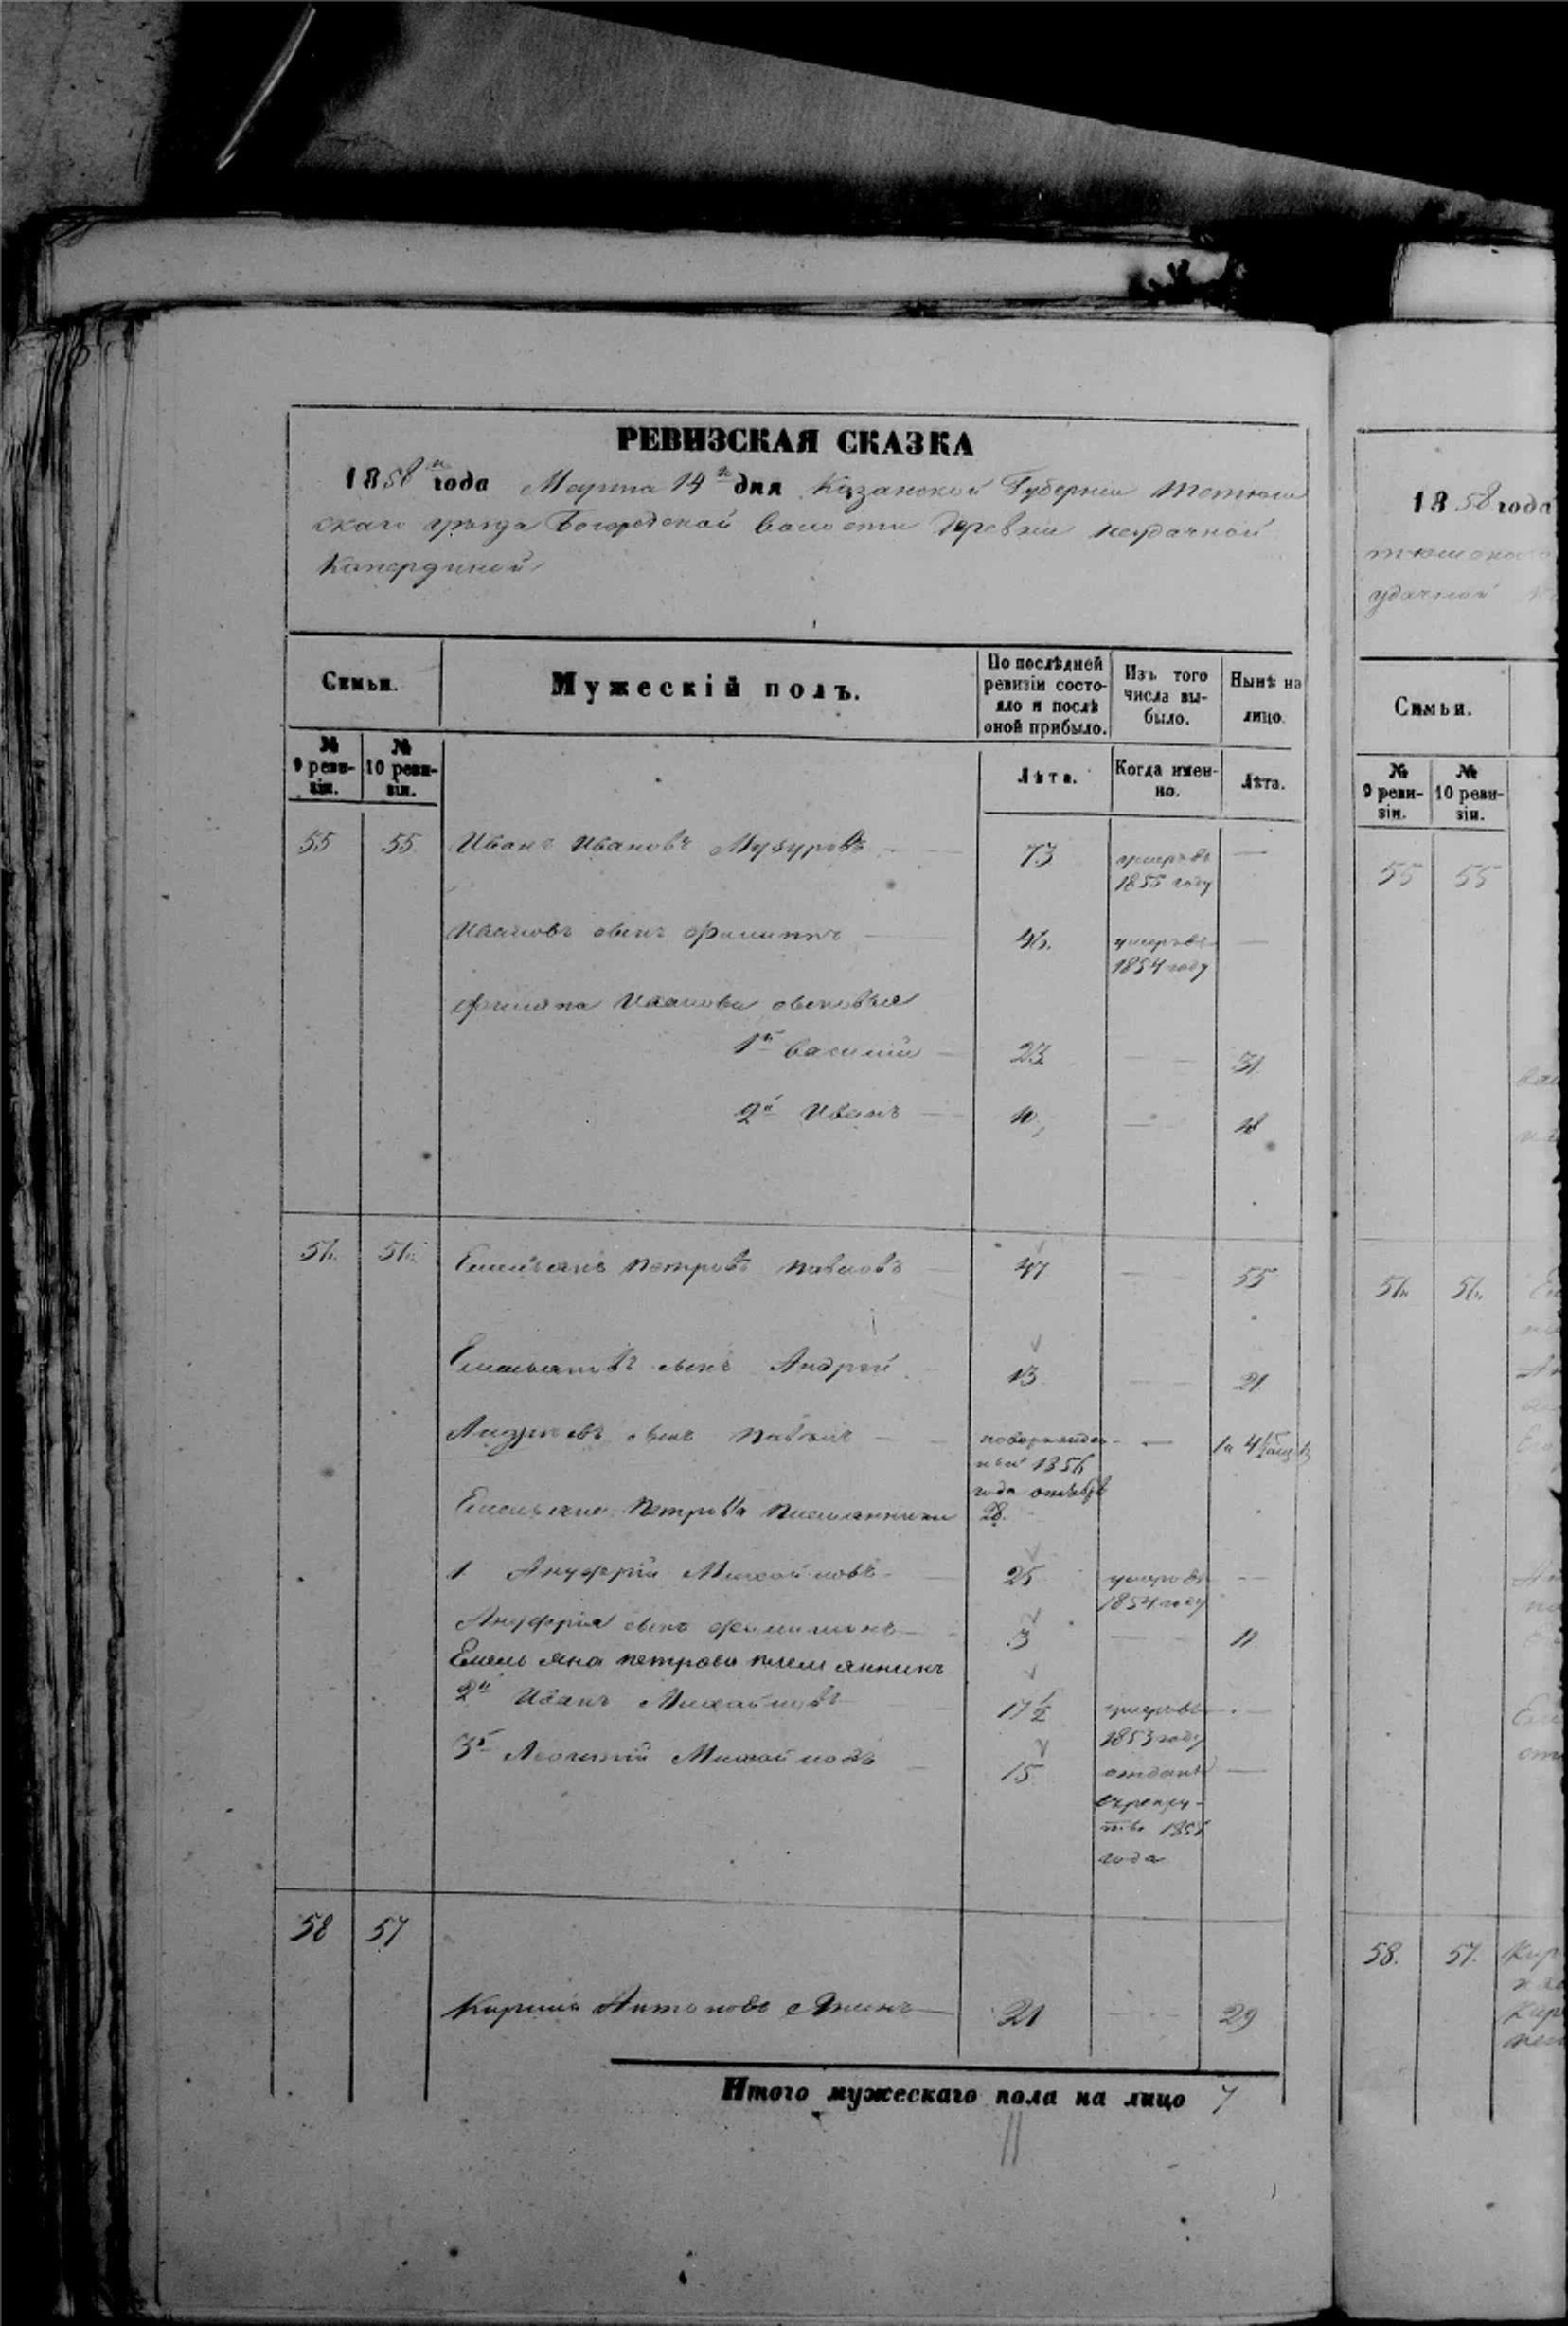 РЕВИЗСКАЯ СКАЗКА
1858 года Марта 14 дня Казанской Губернии Тетюш
скаго уезда Богородской волости Деревни Неудачной
Семьи.
Мужескій полъ.
По послѣдней ревизіи состояло и послѣ оной прибыло.
Изъ того числа выбыло.
Нынѣ на лицо.
№ 9 ревизіи.
№ 10 ревизіи.
Лѣта.
Когда именно.
Лѣта.
55 55 Иванъ Ивановъ 73 умеръ въ — 
1855 году
Ивановъ сынъ Филиппъ 46. умеръ въ —
1854 году
Филипа Иванова сыновья
1й Василий 23 — 31
2й Иванъ 10 — 18
56 56 Емельянъ Петровъ Павловъ 47 — 55
Емельяновъ сынъ Андрей 13 — 21
Андреевъ сынъ новорожден-
ный 1856
года октября
28.
Емельяна Петрова племянники
1 Ануфрій Михайловъ 25 умеръ въ —
1854 году
Ануфрія сынъ Филимонъ 3 — 11
Емельяна Петрова племянникъ
2й Иванъ Михайловъ 17 1/2 умеръ въ —
1853 году
3й Леонтій Михайловъ 15 отданъ —
в рекру-
ты
года
58 57
Антоновъ 21 — 29
Итого мужескаго пола на лицо 7
1858 года
Семьи.
№ 9 ревизіи.
№ 10 ревизіи.
55 55
56 56
58. 57.